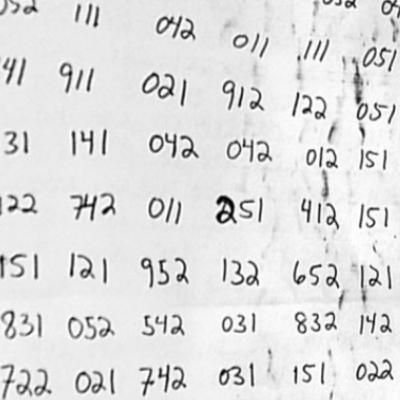 111 042 011 111 051
911 021 912 122 051
31 141 042 042 012 151
122 742 011 251 412 151
151 121 952 132 652 121
831 052 542 031 832 142
722 021 742 031 151 022